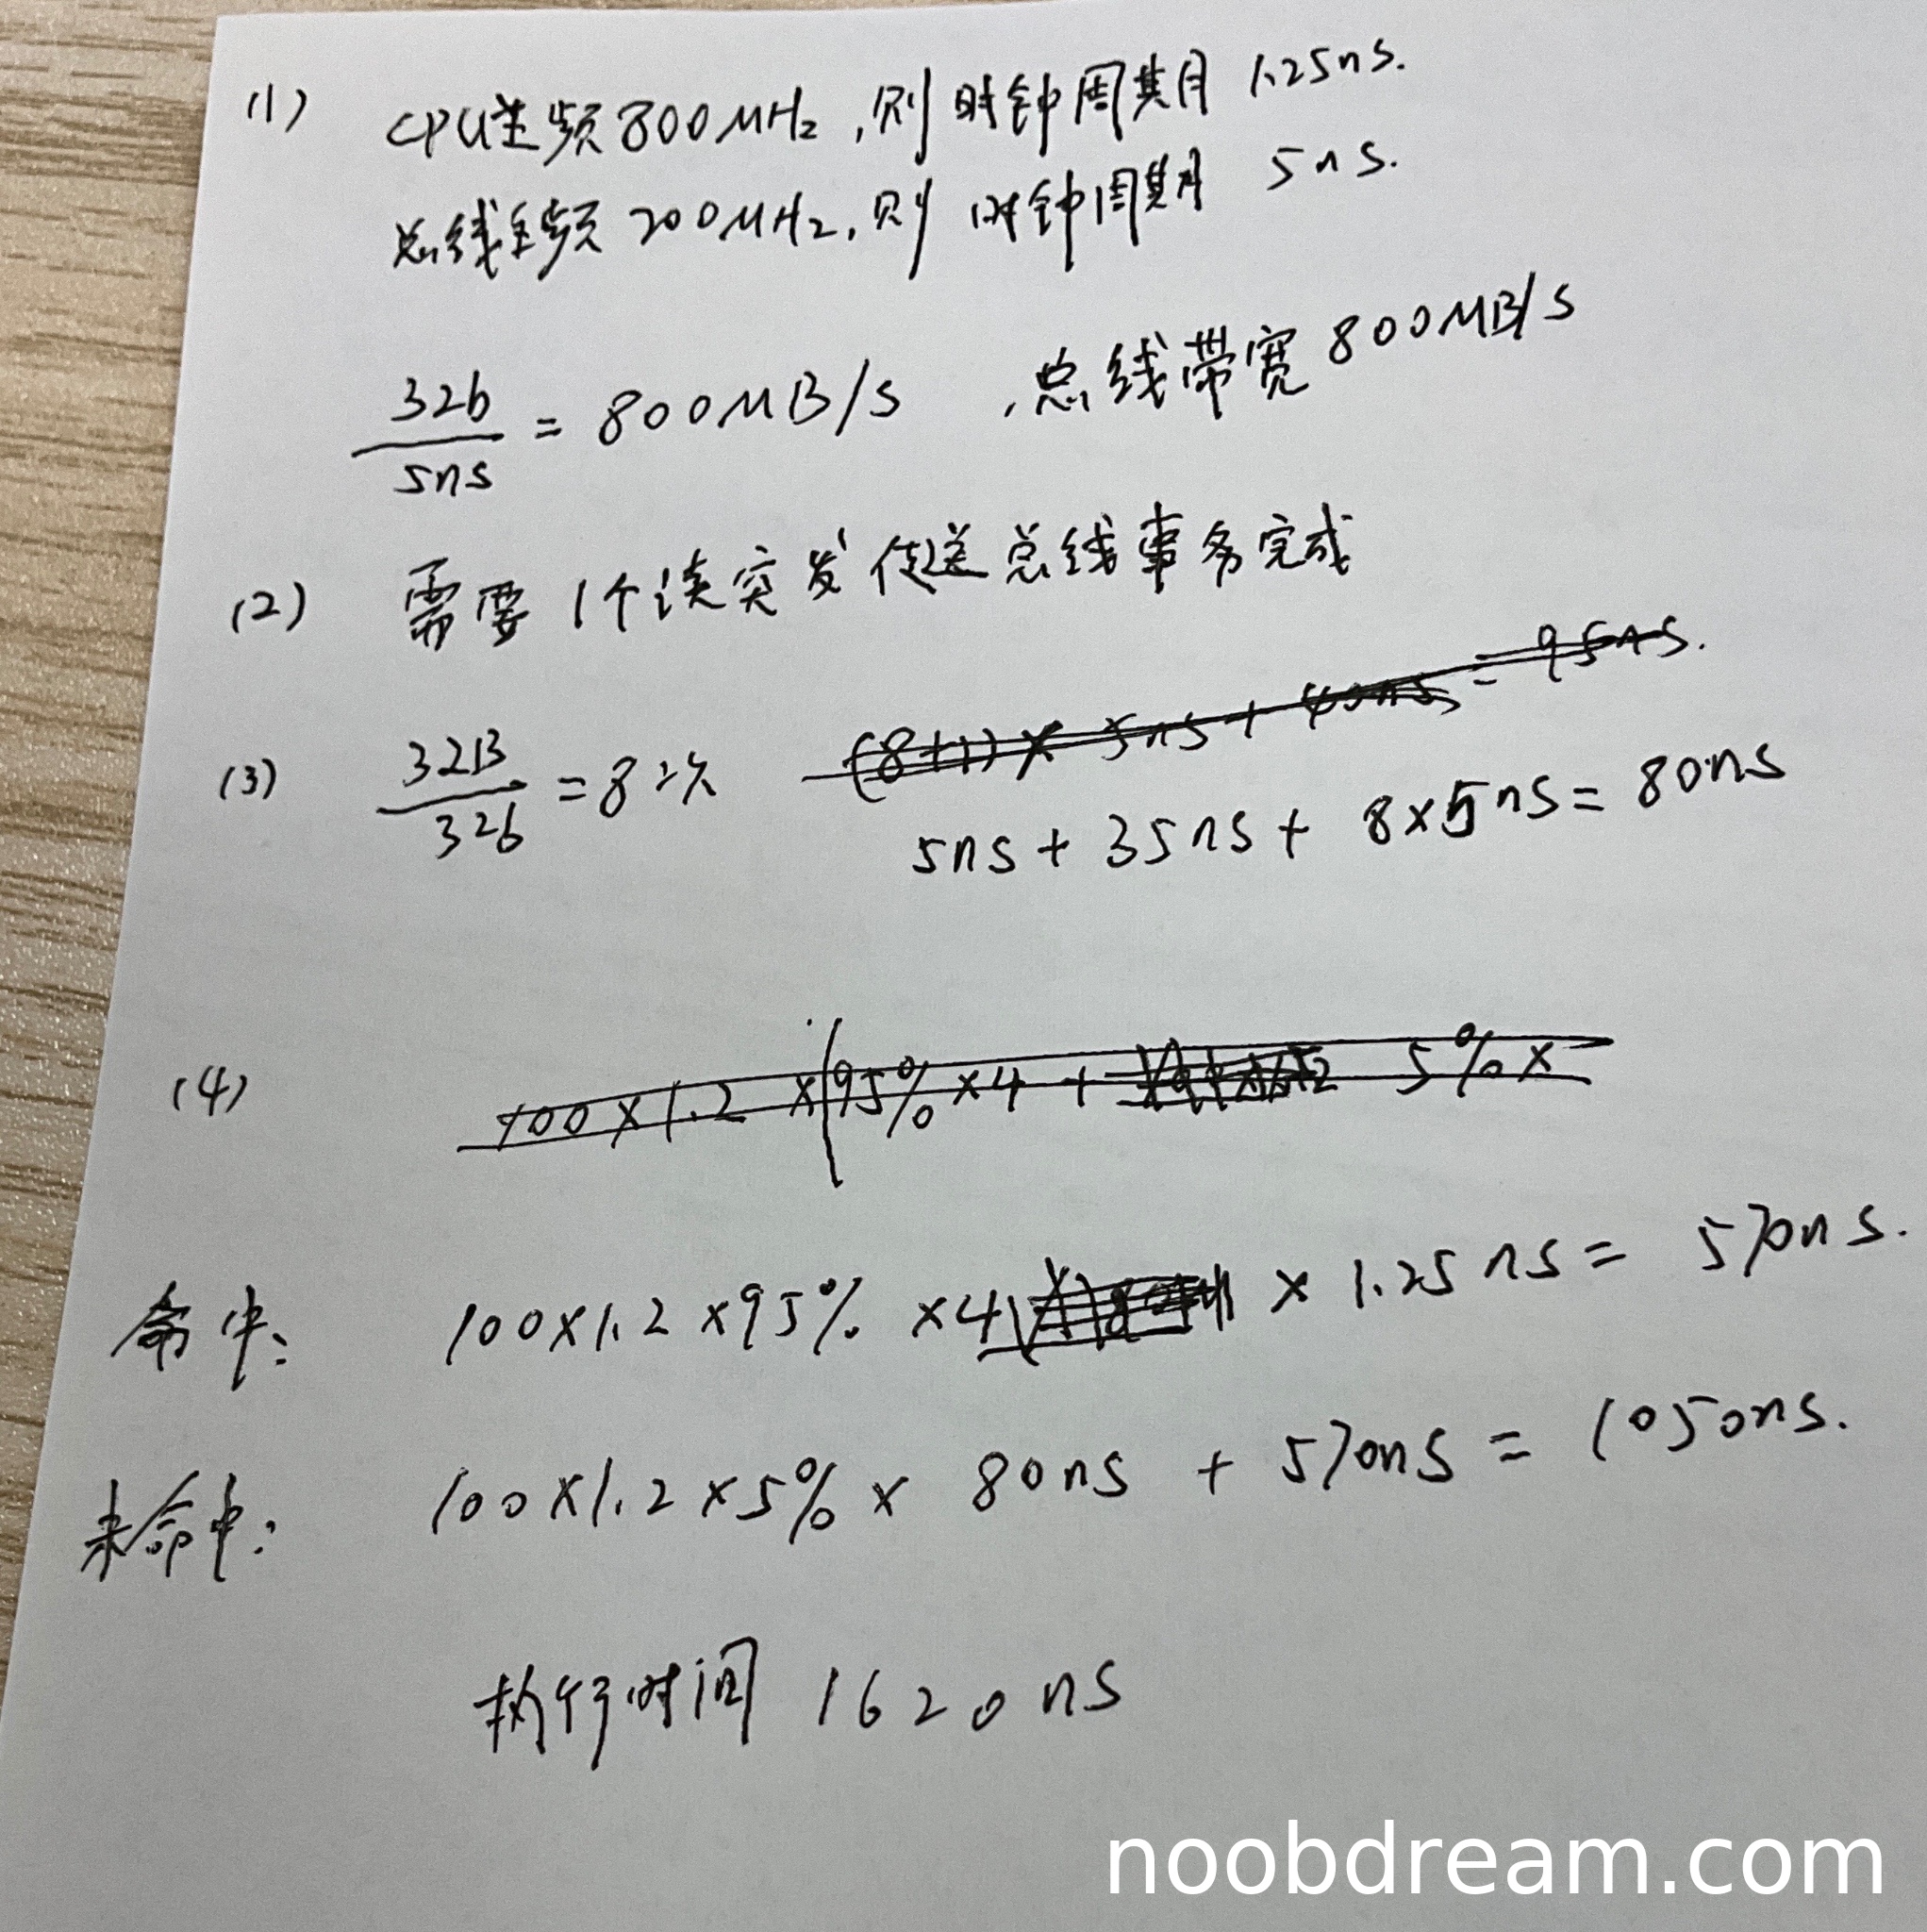 (1) CPU主频800MHz,则时钟周期 1.25ns.
总线主频 200MHz,则 时钟周期 5ns.
32b/5ns = 800MB/s ,总线带宽 800MB/s
(2) 需要 1个读突发传送总线事务完成
(3) 32B/32b = 8次 (8+1)× 5ns + 40ns = 95ns.
5ns + 35ns + 8×5ns = 80ns
(4) 100×1.2 ×(95%×4 + 5%×
命中: 100×1.2×95%×4 × 1.25ns = 570ns.
未命中: 100×1.2×5%× 80ns + 570ns = 1050ns.
执行时间 1620ns
noobdream.com